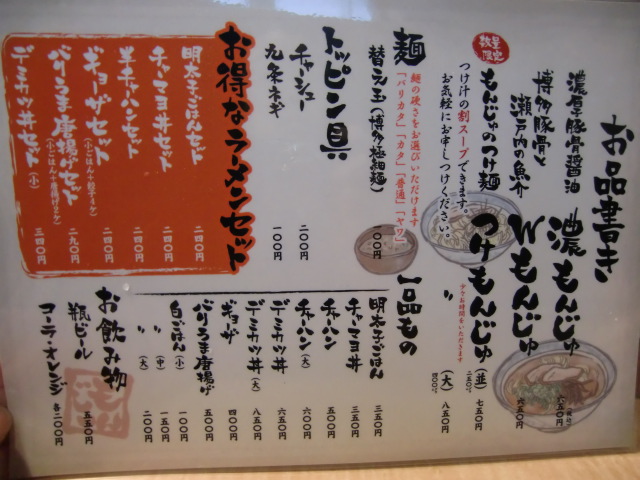 お品書き
濃厚豚骨醤油
濃もんじゅ
六五〇円
(税込)
博多豚骨と
瀬戸内の魚介
Wもんじゅ
六五〇円
数量
限定
もんじゅのつけ麺
つけもんじゅ
(並)
七五〇円
二五〇g
〃
(大)
八五〇円
四〇〇g
少々お時間をいただきます
つけ汁の割スープできます。
お気軽にお申しつけください。
麺
麺の硬さをお選びいただけます
「バリカタ」「カタ」「普通」「ヤワ」
替え玉(博多極細麺)
一〇〇円
トッピン具
チャーシュー
二〇〇円
九条ネギ
一〇〇円
お得なラーメンセット
明太子ごはんセット
二四〇円
チャーマヨ丼セット
二四〇円
半チャーハンセット
二四〇円
ギョーザセット
(小ごはん+餃子4ケ)
二四〇円
バリうま唐揚げセット
(小ごはん+唐揚げ2ケ)
二九〇円
デミカツ丼セット(小)
三四〇円
一品もの
明太子ごはん
三五〇円
チャーマヨ丼
三五〇円
チャーハン
五〇〇円
チャーハン(大)
六〇〇円
デミカツ丼
六五〇円
デミカツ丼(大)
八五〇円
ギョーザ
四〇〇円
バリうま唐揚げ
五〇〇円
白ごはん(小)
一〇〇円
〃(中)
一五〇円
〃(大)
二〇〇円
お飲み物
瓶ビール
五五〇円
コーラ・オレンジ
各二〇〇円